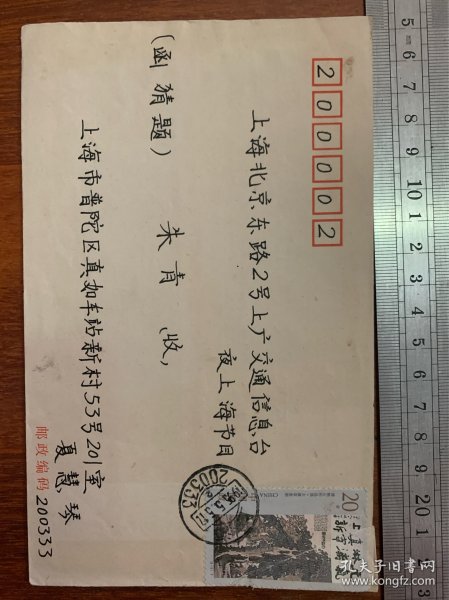 200002
上海北京东路2号上广交通信息台
夜上海节目
朱青 收,
(函猜题)
上海市普陀区真如车站新村53号201室
夏慧琴
邮政编码 200333
20
CHINA
200333
孔夫子旧书网
www.kongfz.com
5=6 7 8 9 10 1 2 3 4 5 6 7 8 9 20 1 2